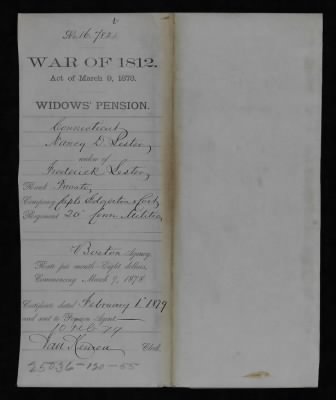 No. 16.782
WAR OF 1812.
Act of March 9, 1878.
WIDOWS' PENSION.
Connecticut
Nancy D. Lester
widow of
Frederick Lester
Rank Private
Company Capts Edgerton & Cort
Regiment 20" Conn Militia
Boston Agency
Rate per month, Eight dollars,
Commencing March 9, 1878
Certificate dated February 1" 1879
and sent to Pension Agent
10 Feb 79
Clerk.
25036-120-55